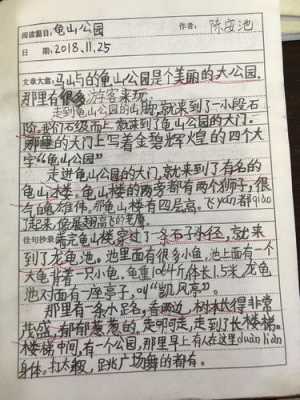 阅读题目:龟山公园 作者:陈安池
日期:2018.11.25
文章大意:马山乡的龟山公园是个美丽的大公园,
那里有很多游客来玩。
走到龟山公园的山脚,就来到了一小段石
阶,我们石级而上就来到了龟山公园的大门。
的大门上写着金碧辉煌的四个大
字“龟山公园”
走进龟山公园的大门,就来到了有名的
龟山楼。龟山楼的两旁都有两个狮子,很
气雄伟。龟山楼有四层高。飞yan都qiao
了起来,像展翅高飞的
佳句抄录:龟山楼穿过了一条石子小径,就来
到了龙龟池。池里面有很多小鱼,池上面有一个
大龟背着一只小龟。龟重1064斤体长1.5米,龙龟
池对面有一座亭子,叫“凯风亭”。
那里有条小路名,路两边,树木长得非常
茂盛,郁郁葱葱的,走啊走,走到了长楼梯。
楼梯中间,有一个公园,那里早上有人在这里duan lian
身体。打太极,跳广场舞的都有。